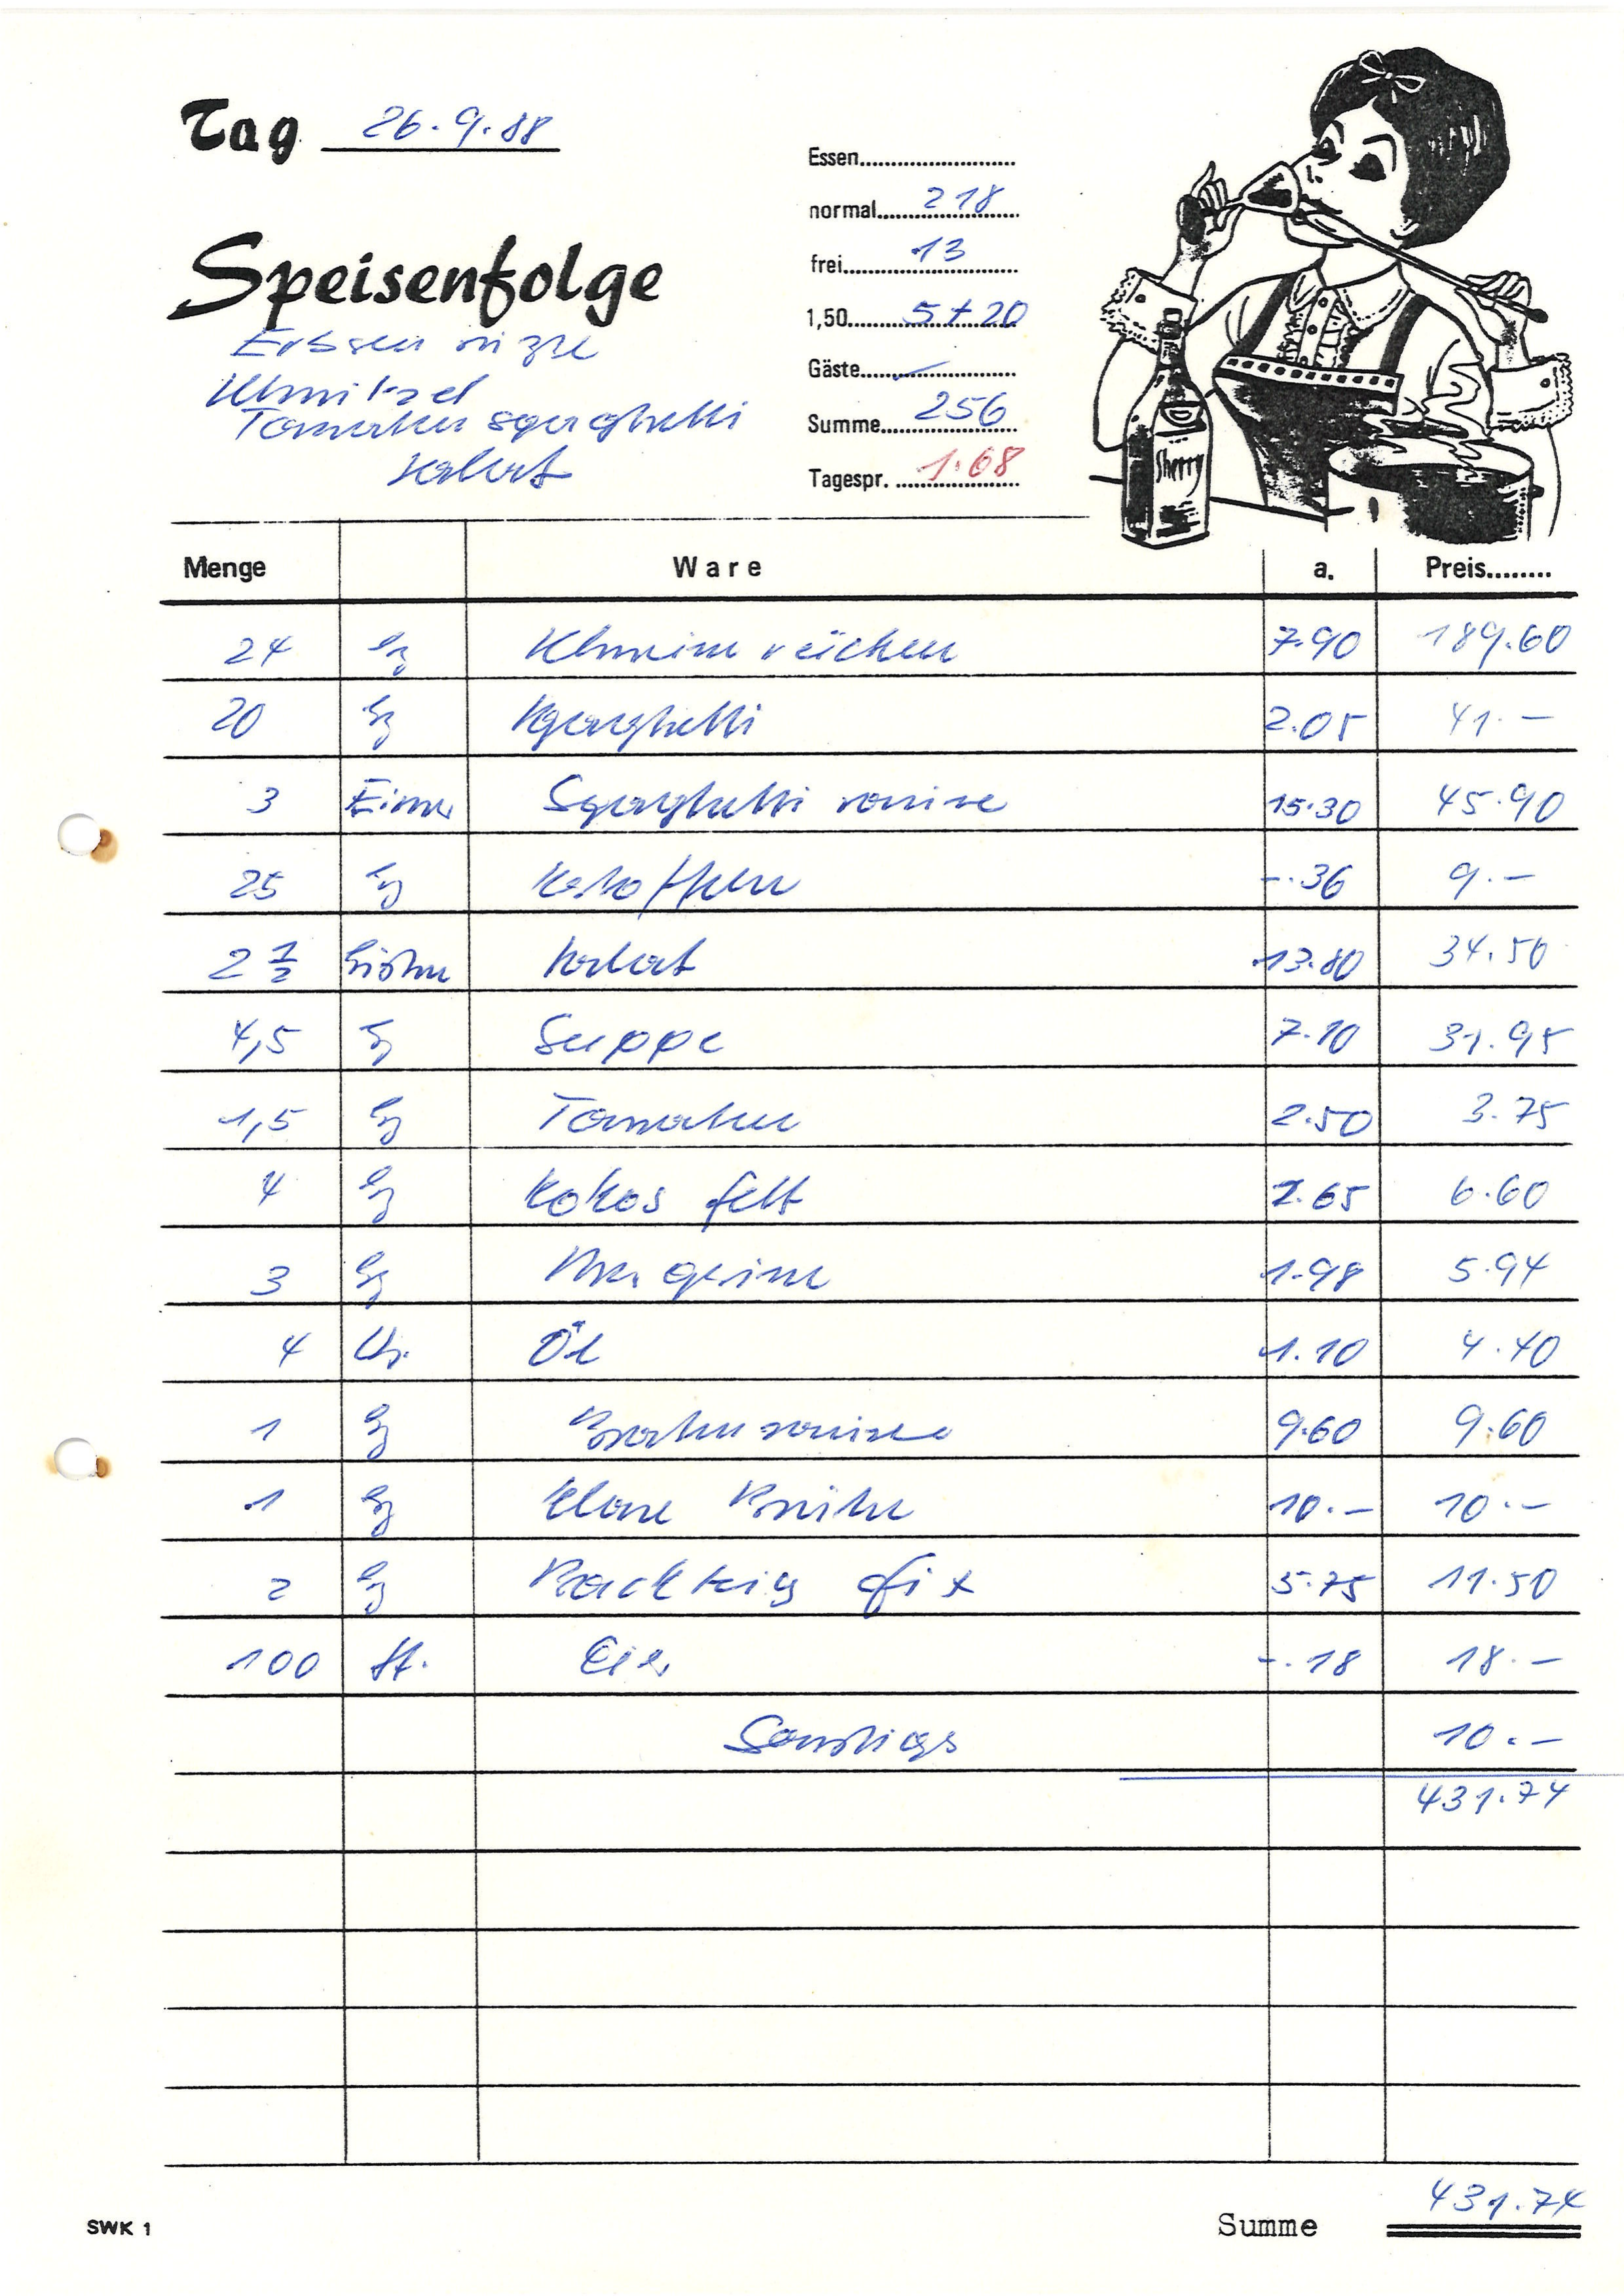 Tag 26.9.88
Speisenfolge
Erbsensuppe
Schnitzel
Tomaten spaghetti
Salat
Essen
normal 218
frei 13
1,50 5+20
Gäste –
Summe 256
Tagespr. 1.68
Sherry
Menge Ware a. Preis
24 kg Schweinerücken 7.90 189.60
20 kg Spaghetti 2.05 41.–
3 Eimer Spaghetti sauce 15.30 45.90
25 kg Kartoffeln –.36 9.–
2 1/2 Kisten Salat 13.80 34.50
4,5 kg Suppe 7.10 31.95
1,5 kg Tomaten 2.50 3.75
4 kg Kokos fett 1.65 6.60
3 kg Margarine 1.98 5.94
4 Ltr. Öl 1.10 4.40
1 kg Bratensauce 9.60 9.60
1 kg Klare Brühe 10.– 10.–
2 kg Backteig fix 5.75 11.50
100 St. Eier –.18 18.–
Sonstiges 10.–
431.74
431.74
SWK 1 Summe